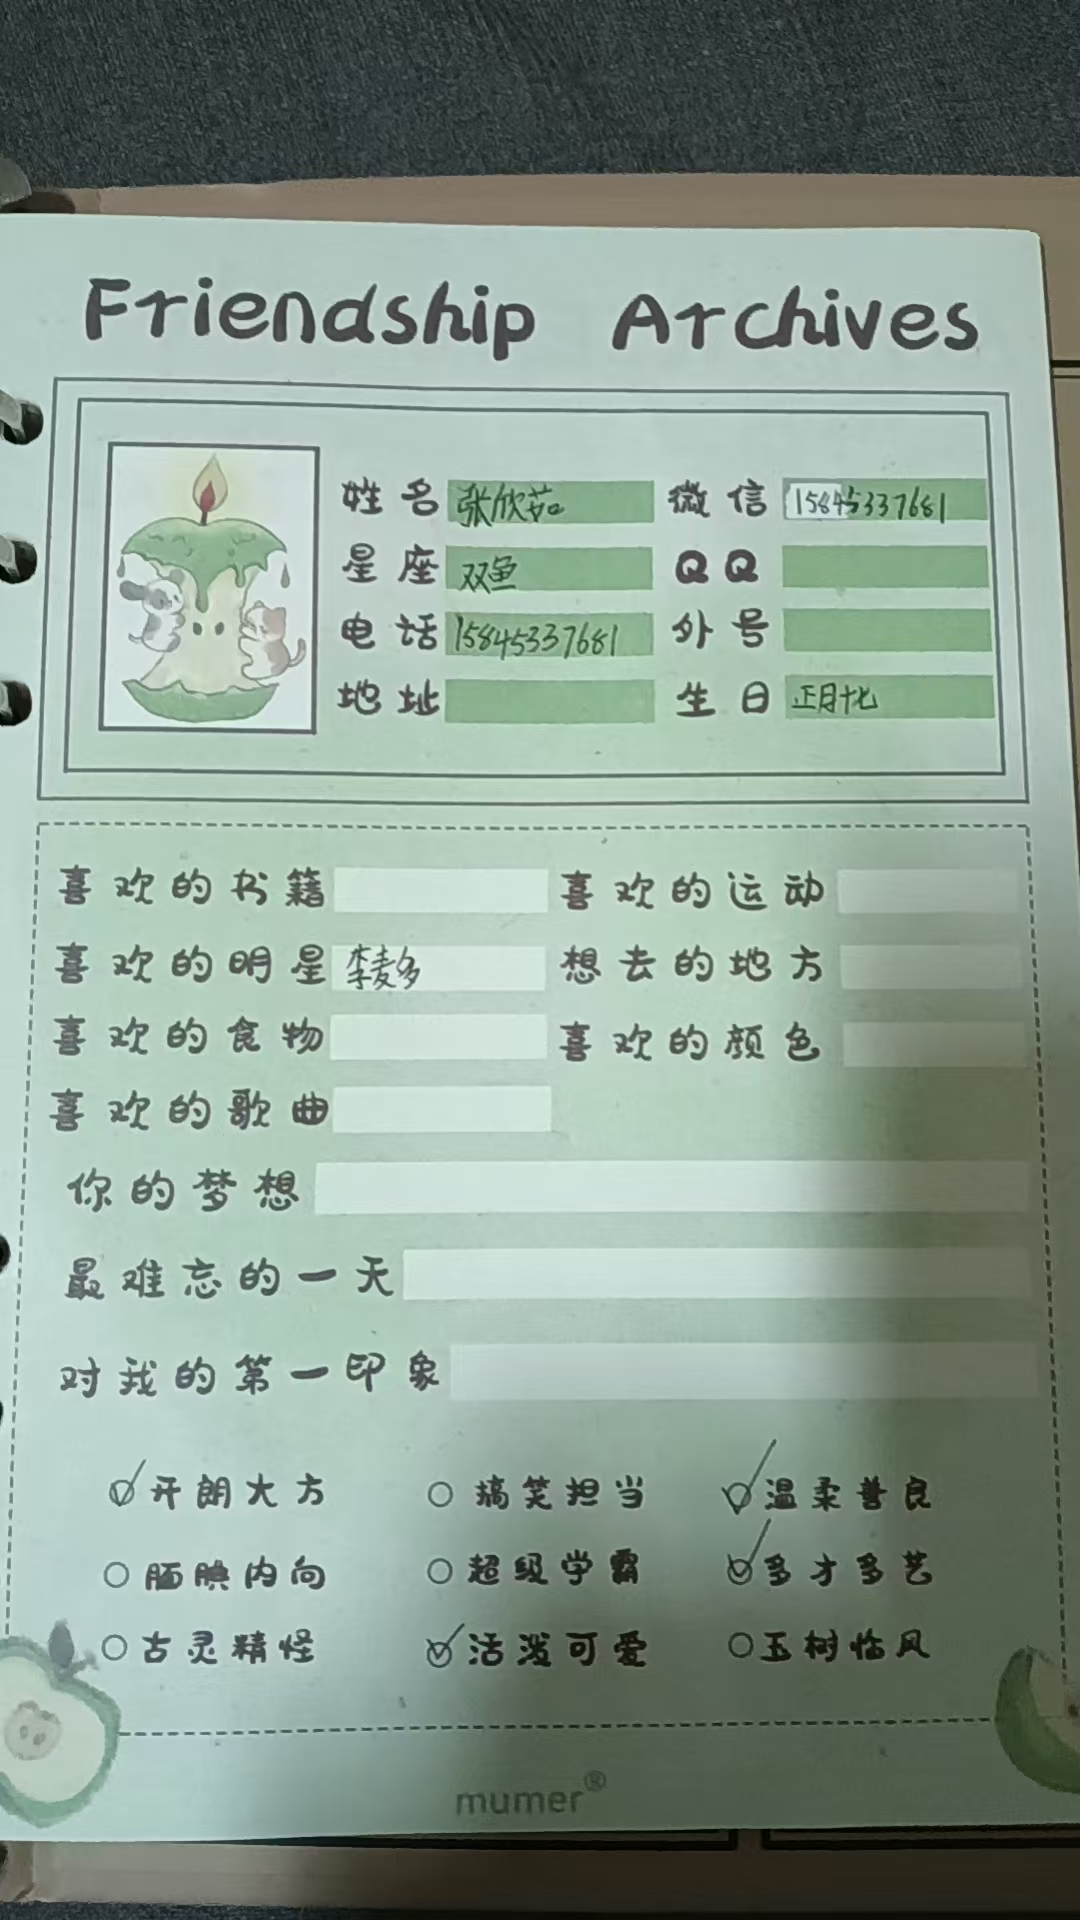 Friendship Archives
姓名 张欣茹 微信 15845337681
星座 双鱼 QQ
电话 15845337681 外号
地址 生日 正月十七
喜欢的书籍 喜欢的运动
喜欢的明星 李麦多 想去的地方
喜欢的食物 喜欢的颜色
喜欢的歌曲
你的梦想
最难忘的一天
对我的第一印象
开朗大方 搞笑担当 温柔善良
腼腆内向 超级学霸 多才多艺
古灵精怪 活泼可爱 玉树临风
mumer®